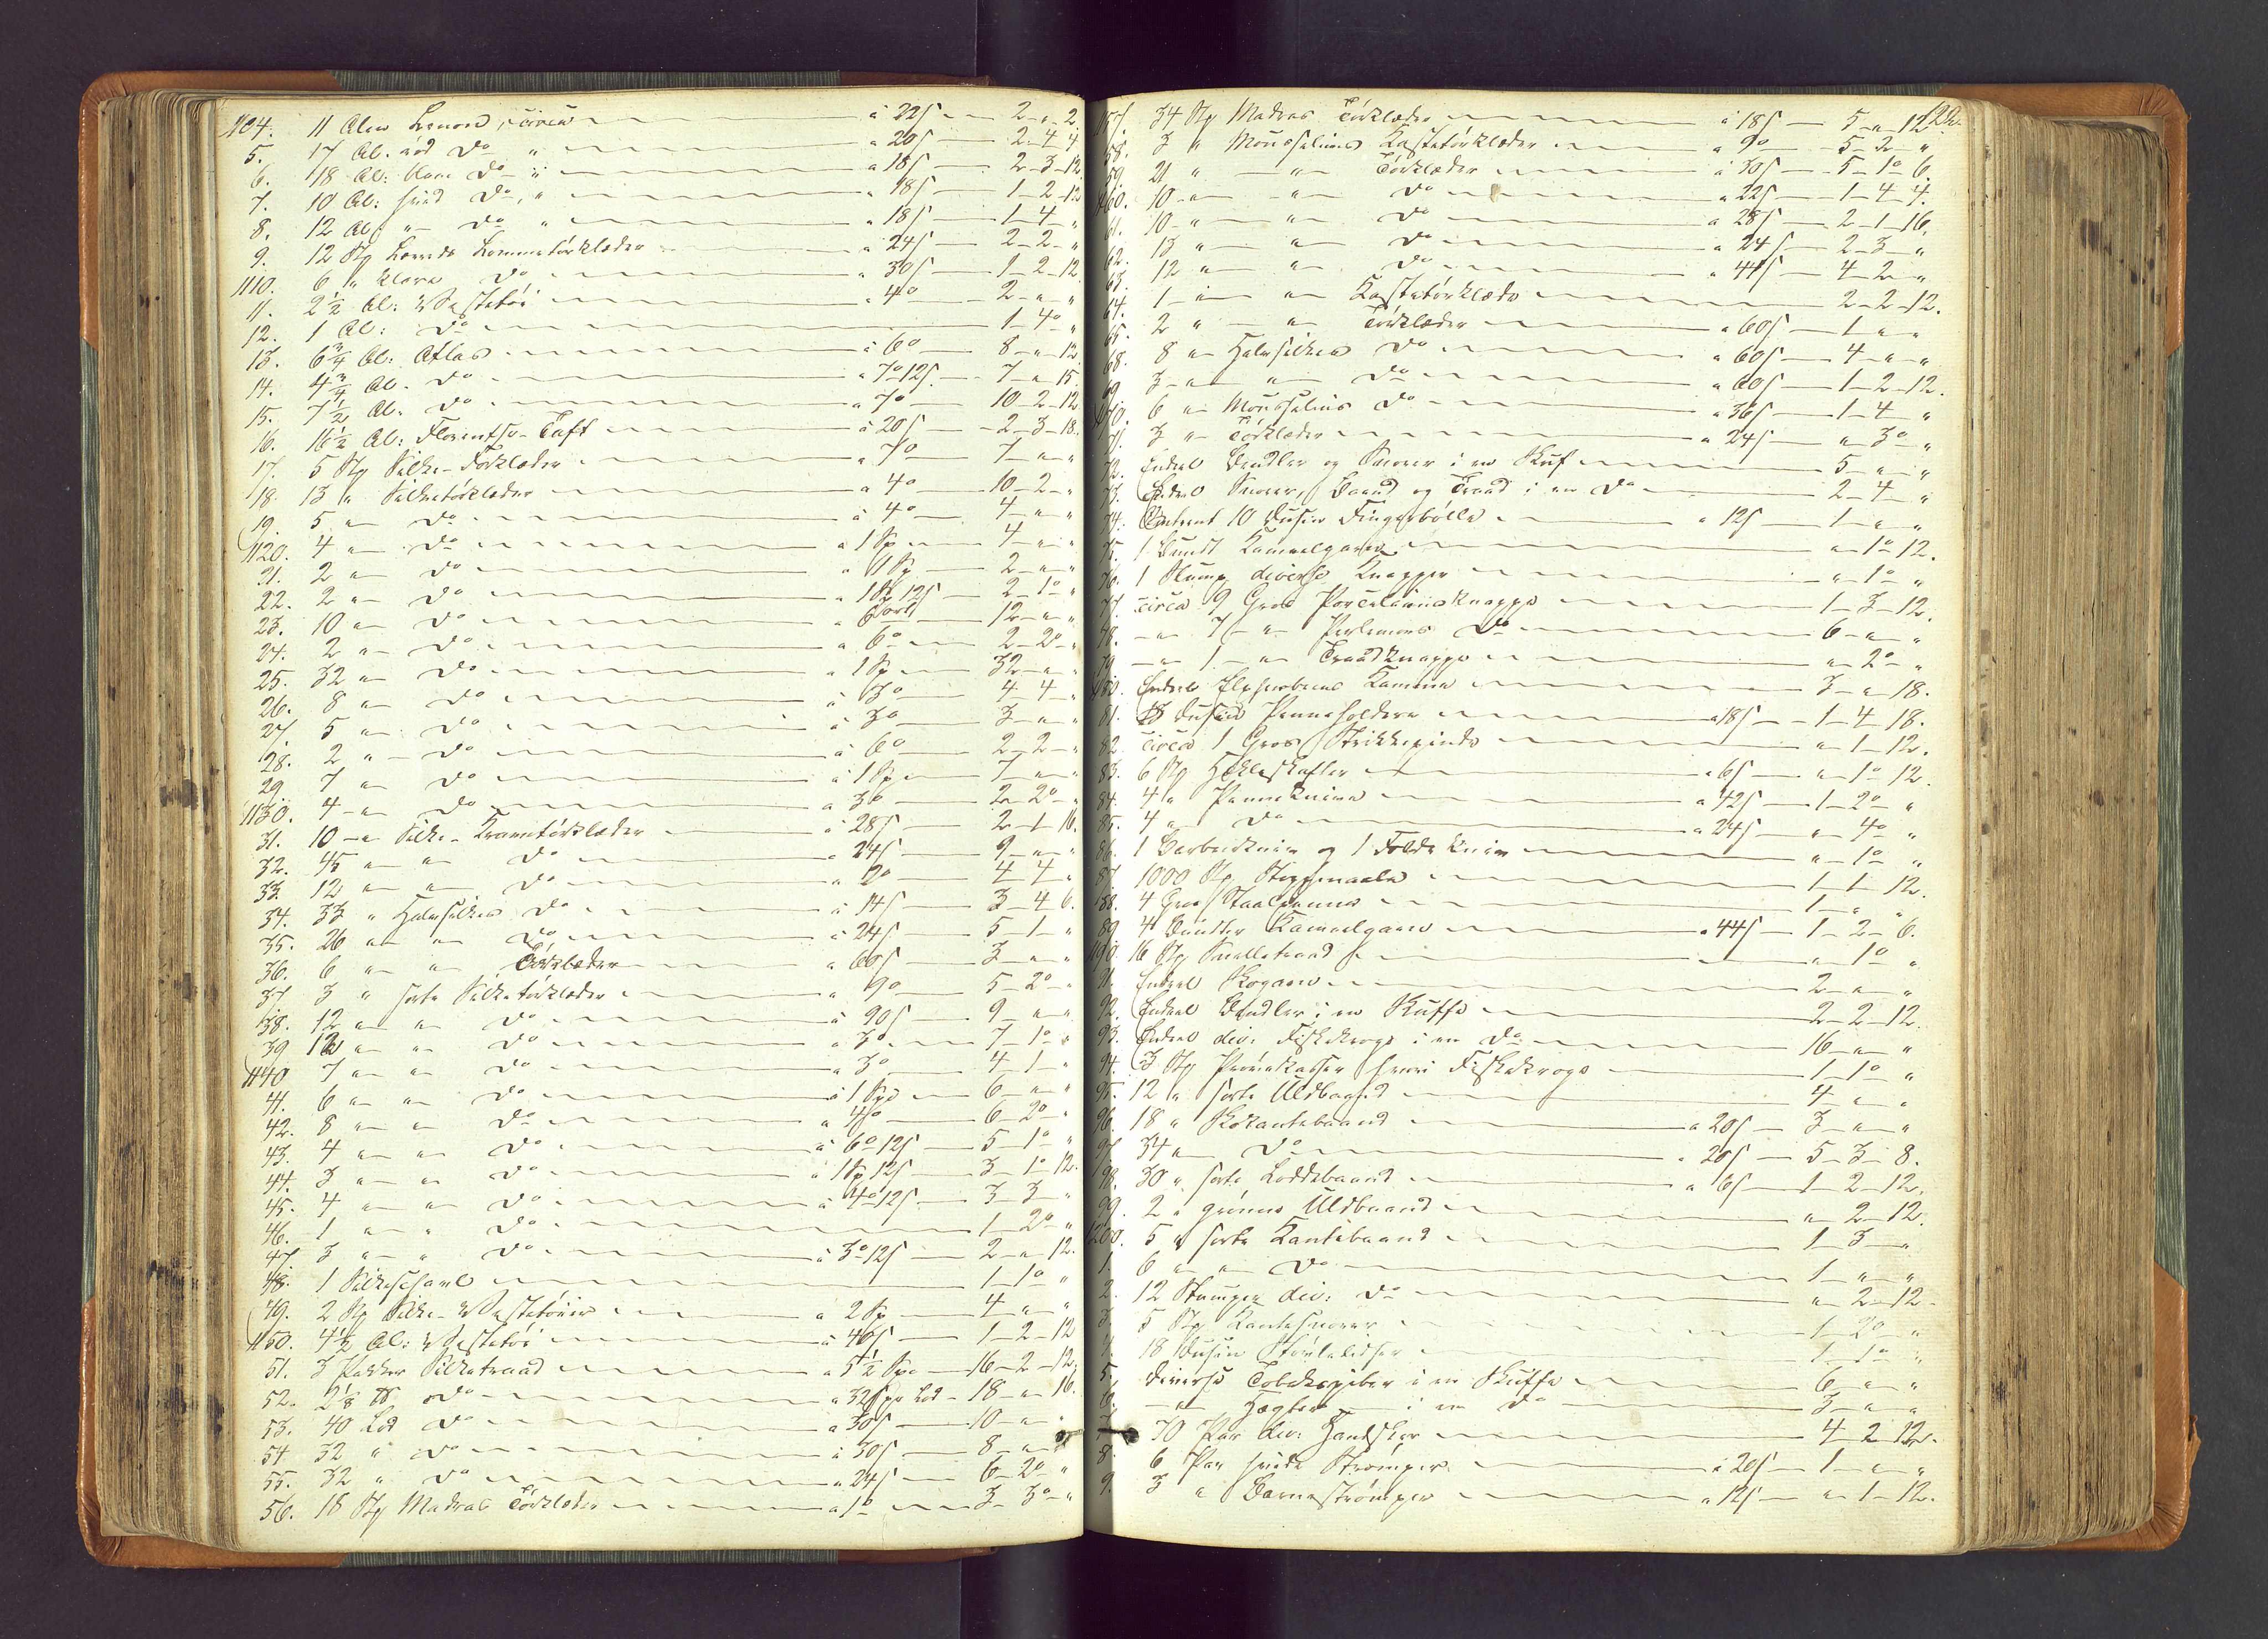 1104. 11 Alen circa à 22ſ 2 " 2
5. 17 Al. rød Do " " 20ſ 2 4 4
6. 18 Al: blaa Do " " 18ſ 2 3 12
7. 10 Al: hvid Do " " 18ſ 1 2 12
8. 12 Al " Do " " 18ſ 1 4 "
9. 12 St Lommetørklæder " 24ſ 2 2 "
1110. 6 " klare Do " 30ſ 1 2 12
11. 2½ Al: Vestetøi " 4o 2 " "
12. 1 Al: Do 1 4o "
13. 6¾ Al: Atlas à 6o 8 " 12
14. 4¾ Al. Do " 7o 12ſ 7 " 15
15. 7½ Al. Do " 7o 10 2 12
16. 16½ Al: Florentse-Taft à 20ſ 2 3 18
17. 5 St Silke-Forklæder " 7o 7 " "
18. 13 " Silketørklæder " 4o 10 2 "
19. 5 " Do à 4o 4 " "
1120. 4 " Do " 1 Sp 4 " "
21. 2 " Do " 1 Sp 2 " "
22. 2 " Do " 1 Sp 12ſ 2 1o "
23. 10 " Do " 6 ort 12 " "
24. 2 " Do " 6o 2 2o "
25. 32 " Do " 1 Sp 32 " "
26. 8 " Do à 3o 4 4 "
27 5 " Do à 3o 3 " "
28. 2 " Do à 6o 2 2 "
29 7 " Do à 1 Sp 7 " "
1130. 4 " Do à 3o 2 2o "
31. 10 " Silke-Kravetørklæder à 28ſ 2 1 16.
32. 45 " " Do " 24ſ 9 " "
33. 12 " " Do " 2o 4 4 "
34. 33 " Halvsilkes Do à 14ſ 3 4 6.
35. 26 " " Do à 24ſ 5 1 "
36. 6 " " Tørklæder " 60ſ 3 " "
37 3 " sorte Silketørklæder " 9o 5 2o "
38. 12 " " Do à 90ſ 9 " "
39 12 " " Do " 3o 7 1o "
1140 7 " " Do " 3o 4 1 "
41. 6 " " Do à 1 Spd 6 " "
42. 8 " " Do " 4o 6 2o "
43. 4 " " Do à 6o 12ſ 5 1o "
44. 3 " " Do à 1 Sp 12ſ 3 1o 12.
45. 4 " " Do à 4o 12ſ 3 3 "
46. 1 " " Do 1 2o "
47 3 " " Do à 3o 12ſ 2 " 12.
48. 1 Silkeschavl 1 1o "
49. 2 St Silke-Vestetøier à 2 Sp 4 " "
1150. 4½ Al: Vestetøi à 46ſ 1 2 12
51. 3 Pakker Silketraad à 5½ Spd 16 2 12.
52. 2⅛ ℔ Do à 32ſ pr Lod 18 " 16.
53. 40 Lod Do " 30ſ 10 " "
54 32 " Do à 30ſ 8 " "
55. 32 " Do " 24ſ 6 2o "
56. 18 St Madras Tørklæder " 1o 3 3o "
122.
157 34 St Madras Tørklæder à 18ſ 5 " 12
58. 3 " Mousselins Kastetørklæder " 9o 5 2 "
59 21 " " Tørklæder à 30ſ 5 1o 6.
1160. 10 " " Do " 22ſ 1 4 4.
61. 10 " " Do " 28ſ 2 1 16.
62. 13 " " Do " 24ſ 2 3 "
63. 12 " " Do " 44ſ 4 2 "
64. 1 " " Kastetørklæde 2 2 12.
65. 2 " " Tørklæder " 60ſ 1 " "
68. 8 " Halvsilkes Do " 60ſ 4 " "
69 3 " " Do " 60ſ 1 2 12.
1170. 6 " Mousselins Do " 36ſ 1 4 "
71. 3 " Tørklæder " 24ſ " 3o "
72. Endeel Bendler og Snorer i en Skuf 5 " "
73. Endeel Snorer, Baand og Traad i en Do 2 4 "
74. Omtrent 10 Dusin Fingerbølle " 12ſ 1 " "
75. 1 Bundt Kameelgarn " 1o 12.
76. 1 Slump diverse Knapper " 1o "
77. circa 9 Gros Porcelainsknappe 1 3 12.
78. " 7 " Perlemors Do 6 " "
79 " 1 " Traadknappe " 2o "
1180. Endeel Elphenbeens Kamme 3 " 18.
81. 13 Dusin Penneholdere " 18ſ 1 4 18.
82 circa 1 Gros Strikkepinde " 1 12.
83. 6 St Hekleskafter " 6ſ " 1o 12
84. 4 " Penneknive " 42ſ 1 2o "
85. 4 " Do " 24ſ " 4o "
86. 1 Barbeerkniv og 1 Foldekniv " 1o "
87 1000 St Stoppenaale 1 1 12.
88. 4 Gros Staalpenne 1 " "
89 4 Bundter Kameelgarn " 44ſ 1 2 6.
1190. 16 St Snelletraad " 1o "
91. Endeel 2 " "
92. Endeel Bendler i en Skuffe 2 2 12.
93. Endeel div: Fiskekroge i en Do 16 " "
94. 3 St Prøvekasser hvori Fiskekroge 1 1o "
95. 12 " sorte Uldbaand 4 " "
96. 18 " Skokantebaand " 20ſ 3 " "
97 34 " Do " 20ſ 5 3 8.
98. 30 " sorte Loddebaand " 6ſ 1 2 12.
99. 2 " grønne Uldbaand " 2 12.
1200. 5 " sorte Kantebaand 1 3 "
1. 6 " " Do 1 " "
2. 12 Stumper div: Do " 2 12
3. 5 St Kantesnorer 1 2o "
4. 18 Dusin Støvlelidser 1 1o "
5. Diverse Tobakspiber i en Skuffe 6 " "
6. " Hægter i en Do 3 " "
7 70 Par div: Handsker 4 2 12.
8. 6 Par hvide Strømper à 20ſ 1 " "
9. 3 " Barnestrømper " 12ſ " 1 12.